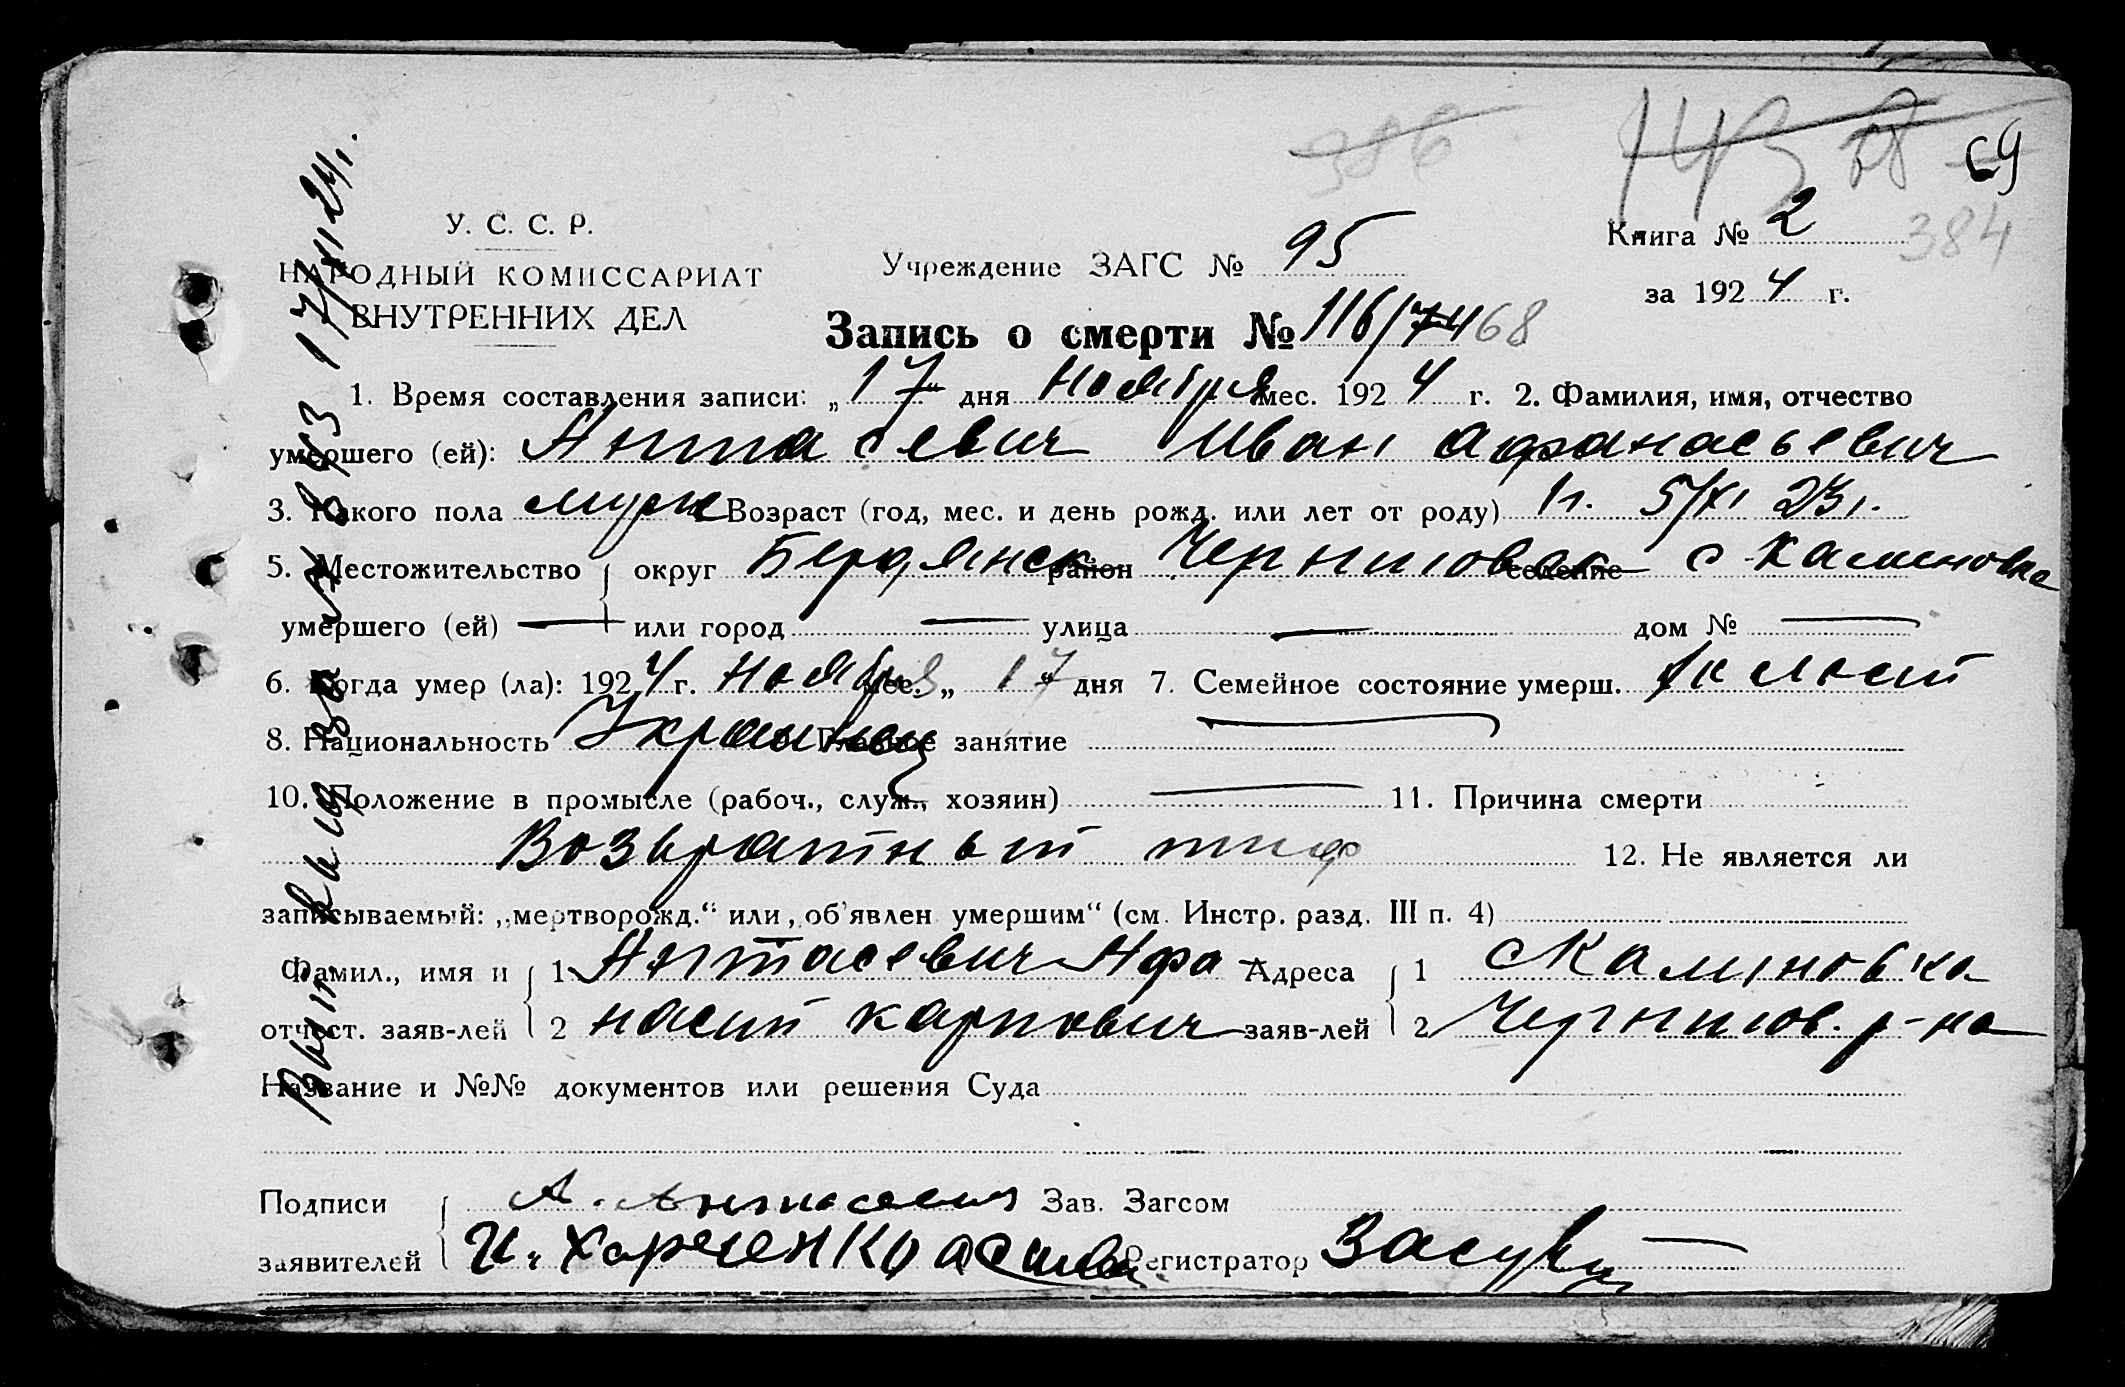 386
143
69
У. С. С. Р.
НАРОДНЫЙ КОМИССАРИАТ
ВНУТРЕННИХ ДЕЛ
Учреждение ЗАГС № 95
Книга № 2
384
за 1924 г.
Запись о смерти № 116/74 68
1. Время составления записи: „17" дня Ноября мес. 1924 г. 2. Фамилия, имя, отчество
умершего (ей): Антасевич Иван Афанасьевич
3. Какого пола муж Возраст (год, мес. и день рожд. или лет от роду) 1 г. 5/XI 23 г.
5. Местожительство округ Бердянск район Черниговск селение с Калиновка
умершего (ей) — или город — улица — дом № —
6. Когда умер (ла): 1924 г. Ноября мес. „17" дня 7. Семейное состояние умерш. холост
8. Национальность Украинец Главное занятие —
10. Положение в промысле (рабоч., служ., хозяин) — 11. Причина смерти
Возвратный тиф 12. Не является ли
записываемый: „мертворожд." или „об'явлен умершим" (см. Инстр. разд. III п. 4)
Фамил., имя и 1 Антасевич Афа Адреса 1 с Калиновка
отчест. заяв-лей 2 насий Карпович заяв-лей 2 Чернигов. р-на
Название и №№ документов или решения Суда
Подписи А. Антасевич Зав. Загсом
заявителей И. Харченко Регистратор
17/XI 24 г.